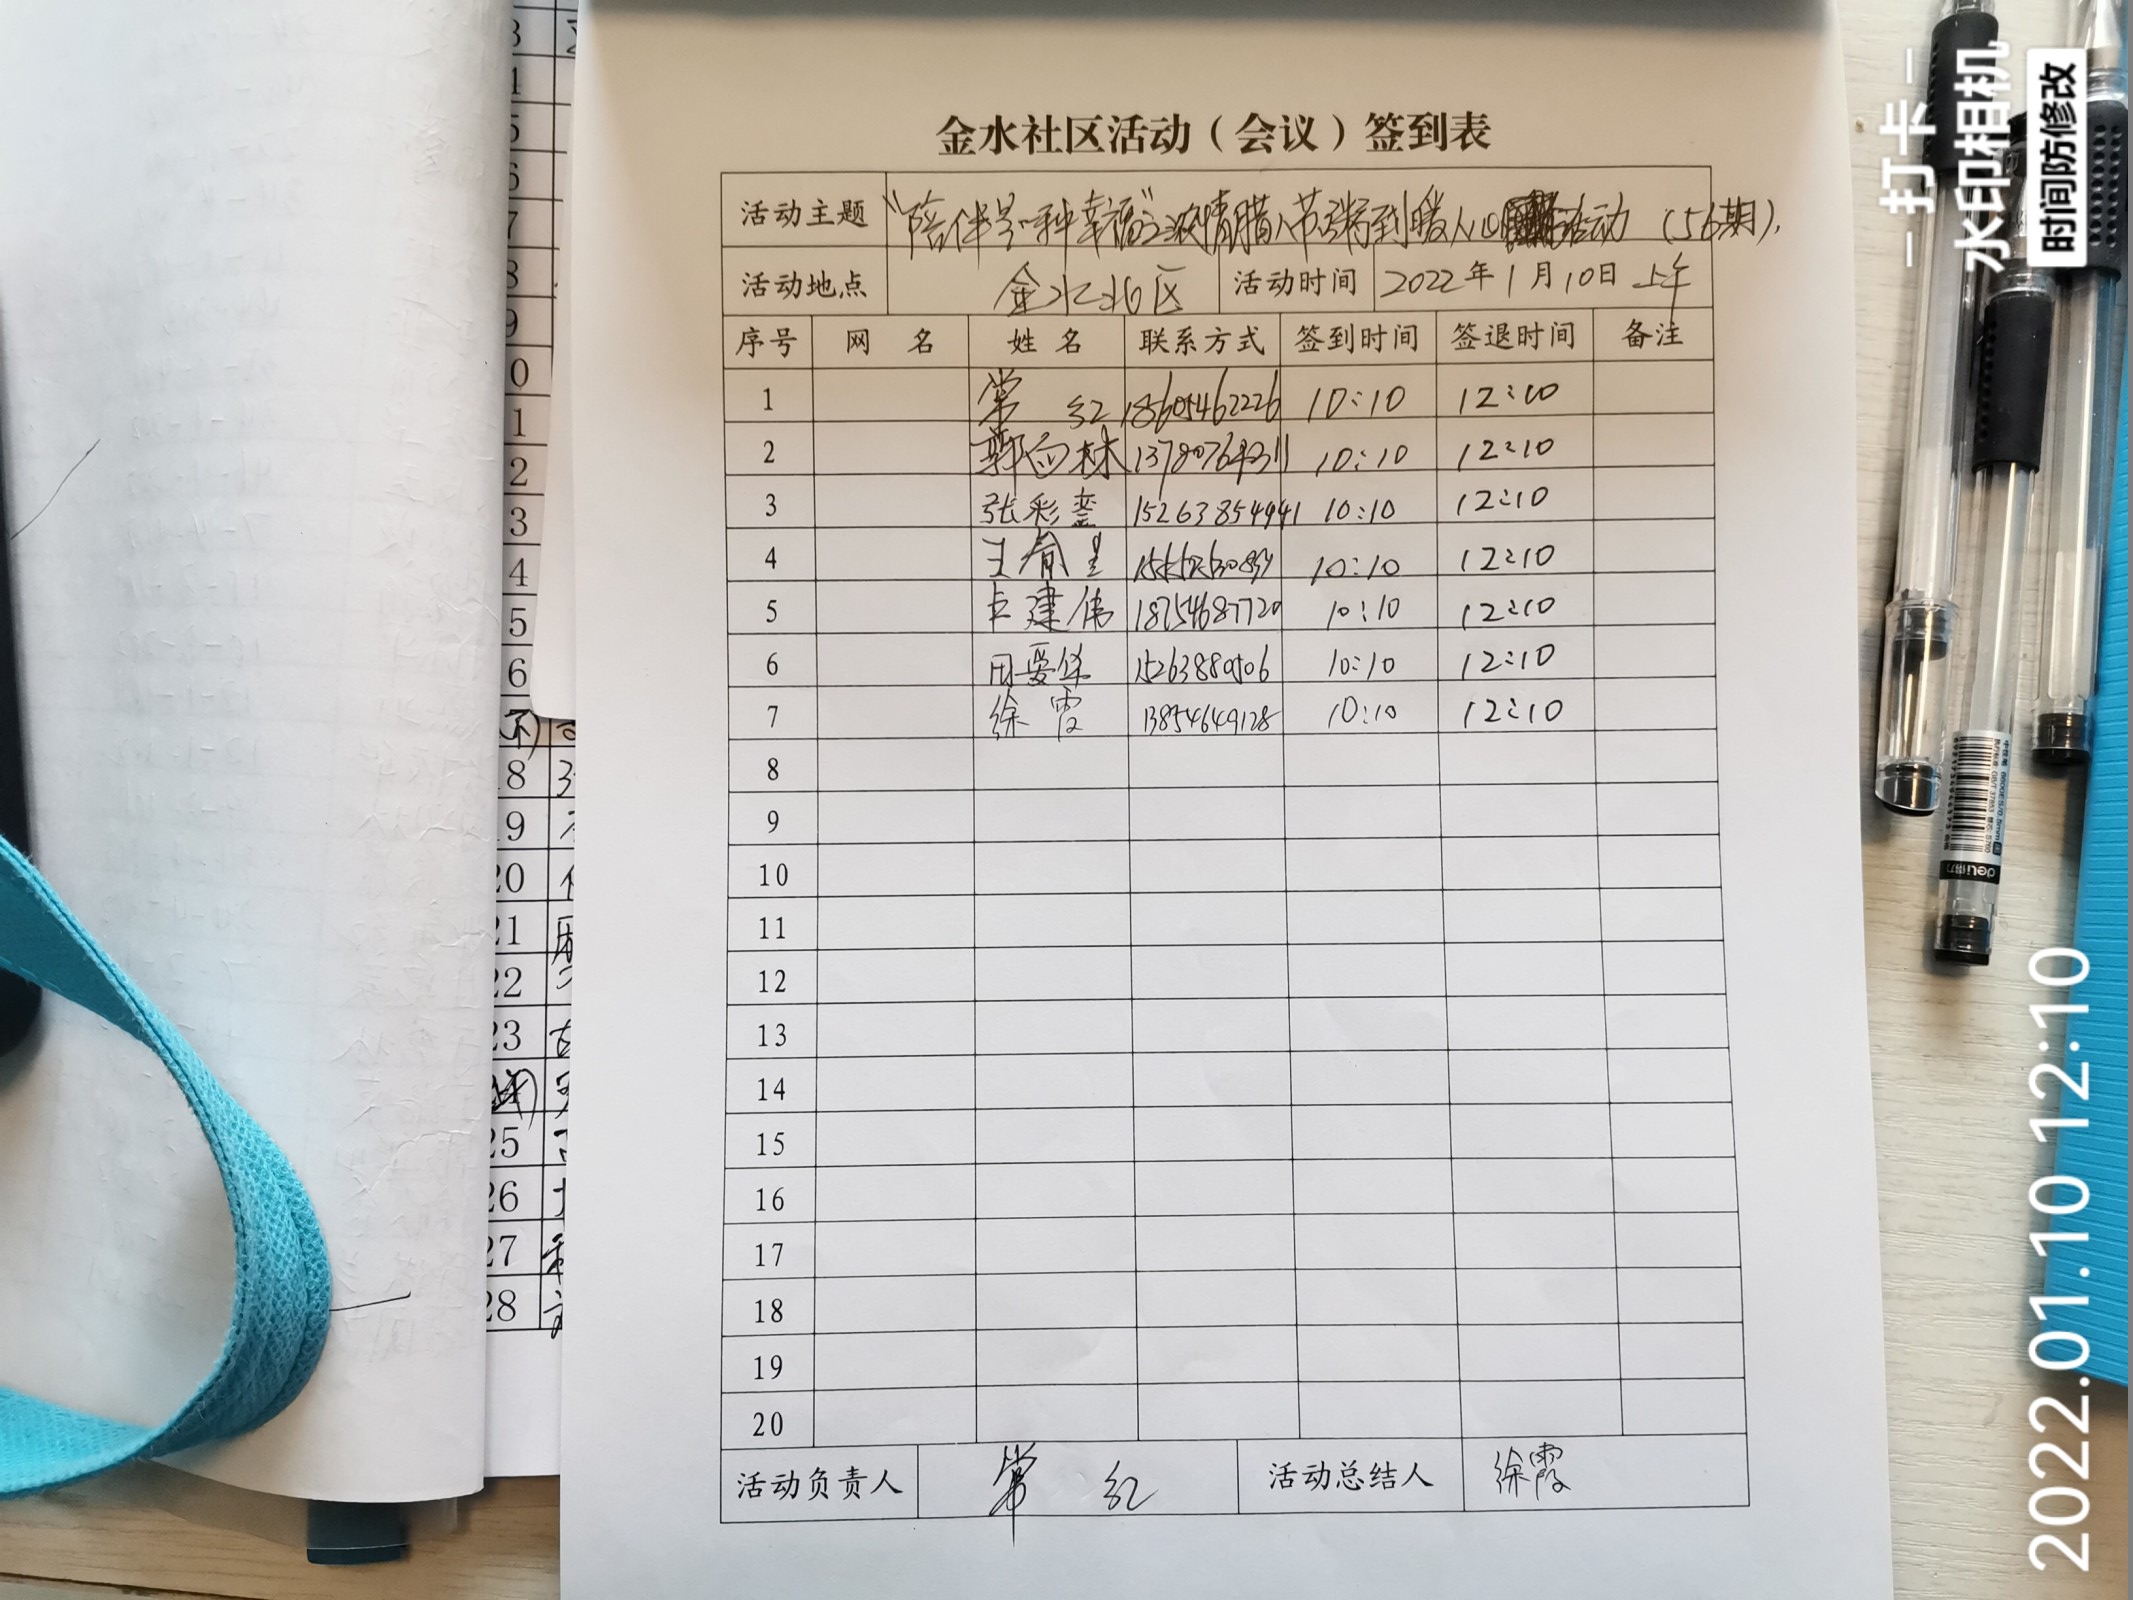 金水社区活动（会议）签到表
活动主题 “陪伴是一种幸福”之浓情腊八节 粥到暖人心 活动（56期）.
活动地点 金水北区 活动时间 2022年1月10日 上午
序号 网 名 姓 名 联系方式 签到时间 签退时间 备注
1 常 红 18605462226 10:10 12:10
2 郭向林 10:10 12:10
3 张彩銮 15263854941 10:10 12:10
4 王 10:10 12:10
5 建伟 18754687720 10:10 12:10
6 周爱华 15263880506 10:10 12:10
7 徐霞 13854649128 10:10 12:10
8
9
10
11
12
13
14
15
16
17
18
19
20
活动负责人 常 红 活动总结人 徐霞
3
1
5
6
7
8
9
0
1
2
3
4
5
6
18
19
20
21
22
23
25
26
27
28
打卡
水印相机
时间防修改
deli 得力
2022.01.10 12:10